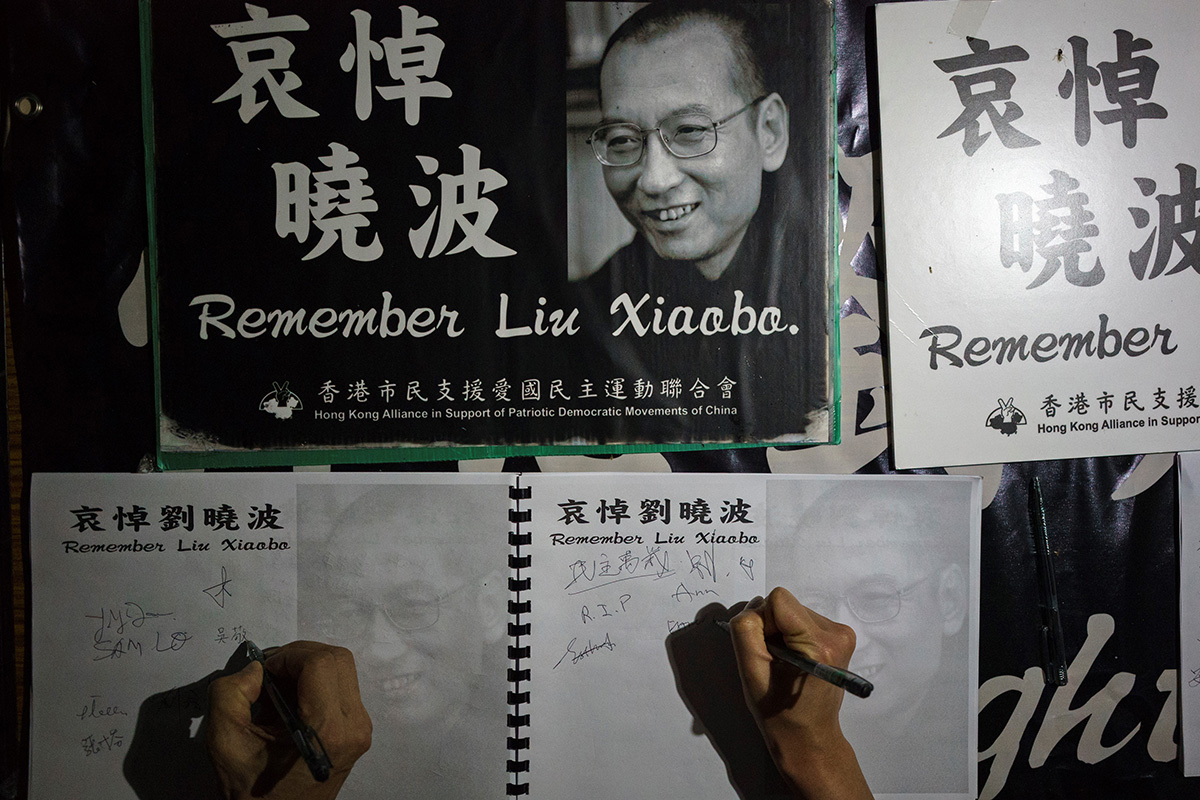 哀悼
曉波
Remember Liu Xiaobo.
香港市民支援愛國民主運動聯合會
Hong Kong Alliance in Support of Patriotic Democratic Movements of China
哀悼
曉波
Remember
香港市民支援
Hong Kong Alliance in Suppor
哀悼劉曉波
Remember Liu Xiaobo
SAM LO
吳敬
哀悼劉曉波
Remember Liu Xiaobo
民主萬歲
Ann
R.I.P
ght